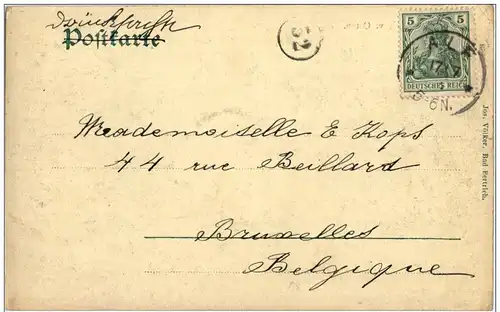 Drucksache
Postkarte
5 5
DEUTSCHES REICH
ALF
17 7
5-6N.
Mademoiselle E Kops
44 rue Beillard
Bruxelles
Belgique
Jos. Völker, Bad Bertrich.